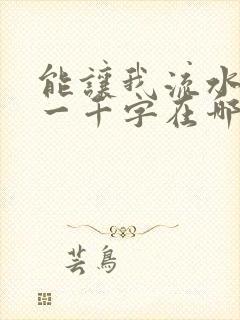 能讓我流水
一千字在哪
芸鳥